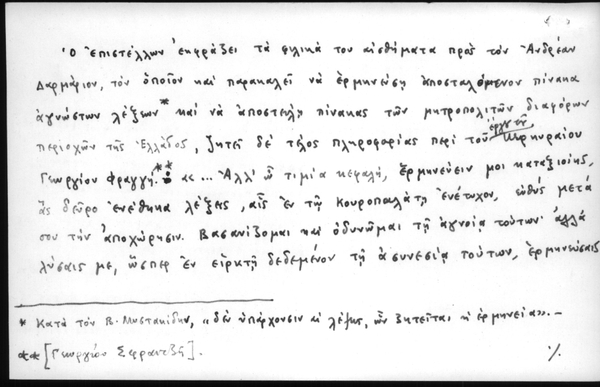 Ὁ ἐπιστέλλων ἐκφράζει τὰ φιλικά του αἰσθήματα πρὸς τὸν Ἀνδρέαν
Δαρμάριον, τὸν ὁποῖον καὶ παρακαλεῖ νὰ ἑρμηνεύσῃ ἀποσταλόμενον πίνακα
ἀγνώστων λέξεων* καὶ νὰ ἀποστείλῃ πίνακας τῶν μητροπολιτῶν διαφόρων
περιοχῶν τῆς Ἑλλάδος, ζητεῖ δὲ τέλος πληροφορίας περὶ τοῦ
Γεωργίου Φραγγῆ.** ... Ἀλλ' ὦ τιμία κεφαλή, ἑρμηνεύειν μοι καταξιοίης,
ἃς δεῦρο ἐνέθηκα λέξεις, αἷς ἐν τῇ κουροπαλάτῃ ἐνέτυχον, εὐθὺς μετὰ
σου τὴν ἀποχώρησιν. Βασανίζομαι καὶ ὀδυνῶμαι τῇ ἀγνοίᾳ τούτων· ἀλλὰ
λύσαις με, ὥσπερ ἐν εἱρκτῇ δεδεμένον τῇ ἀσυνεσίᾳ τούτων, ἑρμηνεύσαις
* Κατὰ τὸν Β. Μυστακίδην, «δὲν ὑπάρχουσιν αἱ λέξεις, ὧν ζητεῖται ἡ ἑρμηνεία». –
** [Γεωργίου Σφραντζῆ].
·/.